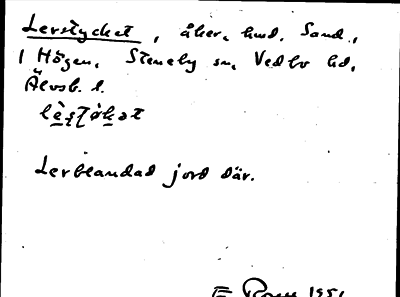 Lerstycket, åker, hmd. Sand.,
1 Högen, Steneby sn, Vedbo hd,
Älvsb. l.
Lerblandad jord där.
E Rosell 1951